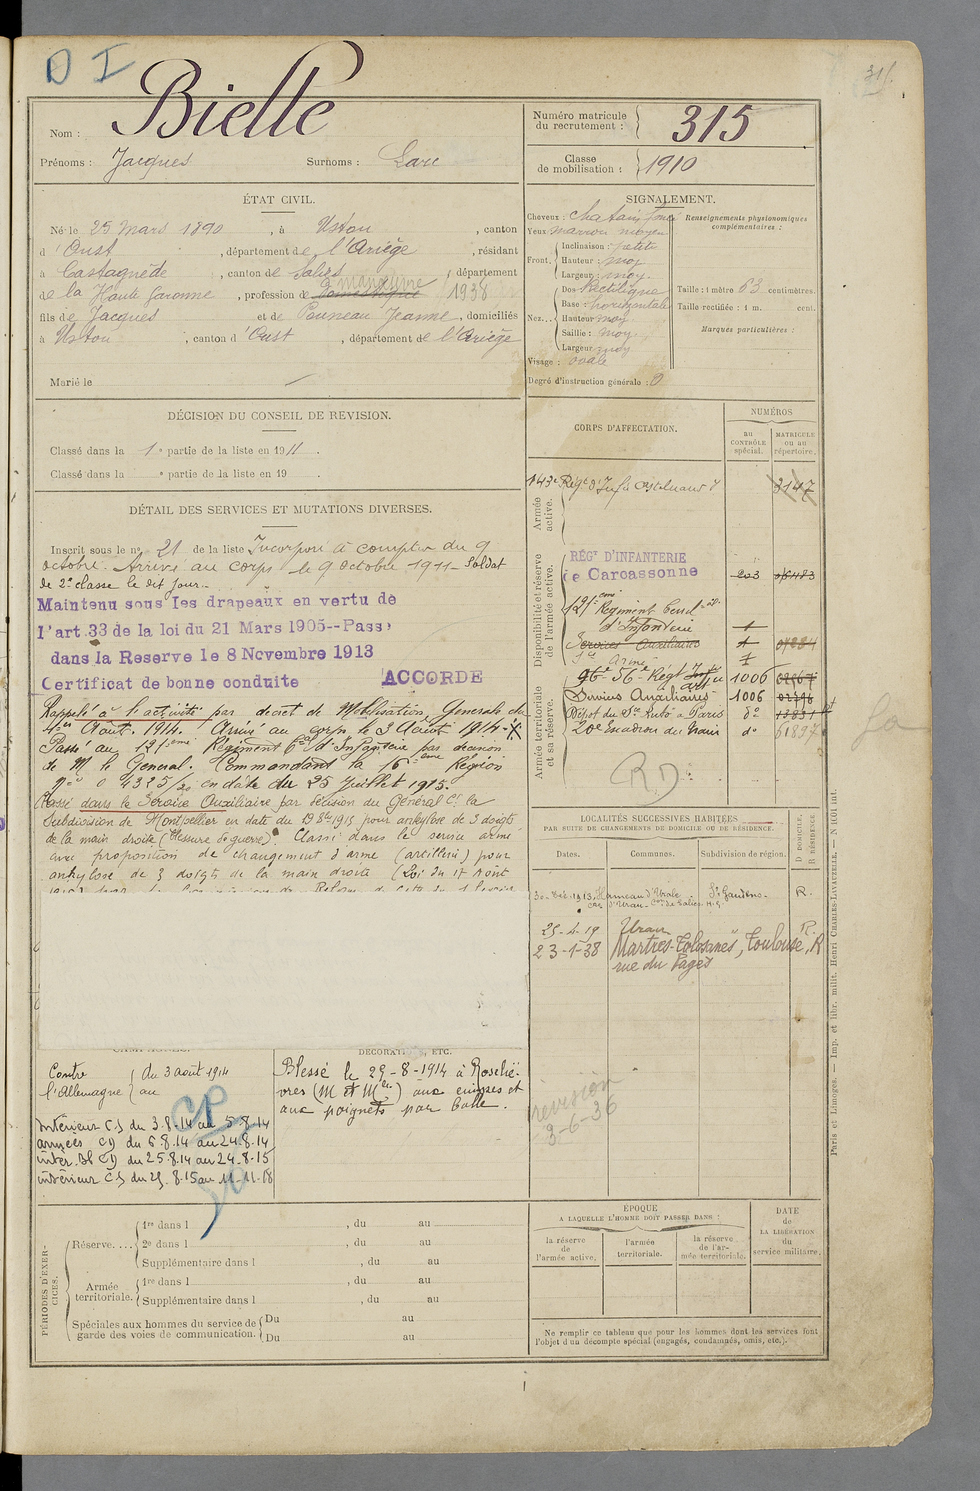 D I
315
Nom : Bielle
Prénoms : Jacques Surnoms :
Numéro matricule du recrutement : 315
Classe de mobilisation : 1910
ÉTAT CIVIL.
Né le 25 Mars 1890, à Ustou, canton
d'Oust, département de l'Ariège, résidant
à Castagnède, canton de Salies, département
de la Haute Garonne, profession de 1938
fils de Jacques et de Jeanne, domiciliés
à Ustou, canton d'Oust, département de l'Ariège
Marié le
SIGNALEMENT.
Cheveux : chatain foncé
Yeux marron moyen
Front. Inclinaison : petite
Hauteur : moy
Largeur : moy.
Nez... Dos Rectiligne
Base : horizontale
Hauteur moy.
Saillie : moy.
Largeur moy
Visage : ovale
Degré d'instruction générale : 0
Renseignements physionomiques complémentaires :
Taille : 1 mètre 63 centimètres.
Taille rectifiée : 1 m. cent.
Marques particulières :
DÉCISION DU CONSEIL DE REVISION.
Classé dans la 1e partie de la liste en 1911.
Classé dans la e partie de la liste en 19 .
DÉTAIL DES SERVICES ET MUTATIONS DIVERSES.
Inscrit sous le no 21 de la liste Incorporé à compter du 9
octobre. Arrivé au corps le 9 octobre 1911 - Soldat
de 2e classe le dit jour.
Maintenu sous les drapeaux en vertu de
l'art.33 de la loi du 21 Mars 1905--Passé
dans la Reserve le 8 Novembre 1913
Certificat de bonne conduite ACCORDE
Rappelé à l'activité par décret de Mobilisation Générale du
1er Août 1914. Arrivé au corps le 3 Août 1914.
Passé au 121eme Régiment d'Infanterie par décision
de M. le General Commandant la 16eme Région
no 4325/20 en date du 25 Juillet 1915.
Passé dans le Service Auxiliaire par décision du Général Ct la
Subdivision de Montpellier en date du 1915 pour ankylose de 3 doigts
de la main droite (Blessure de guerre). Classé dans le service armé
avec proposition de changement d'arme (artillerie) pour
ankylose de 3 doigts de la main droite (Loi du 17 Aout
CORPS D'AFFECTATION.
NUMÉROS
au CONTRÔLE spécial.
MATRICULE ou au répertoire.
Armée active.
143e Régt d'Infie Castelnaudary 3147
Disponibilité et réserve de l'armée active.
RÉGT D'INFANTERIE
de Carcassonne
121eme Régiment
d'Infanterie 1
Services Auxiliaires 1
Armée territoriale et sa réserve.
56e Régt 1006
Services Auxiliaires 1006
Dépot du Sce Auto à Paris do
20e Escadron du Train do
RD
LOCALITÉS SUCCESSIVES HABITÉES
PAR SUITE DE CHANGEMENTS DE DOMICILE OU DE RÉSIDENCE.
Dates. Communes. Subdivision de région. D DOMICILE, R RÉSIDENCE.
1913 Hameau d' St Gaudens R.
Uran R.
23-1-38 Martres-Tolosanes, Toulouse, R
rue du Pages
revision
3-6-36
CAMPAGNES.
Contre l'Allemagne du 3 août 1914
au
CP
Intérieur CS du 3.8.14 au 5.8.14
armées CD du 6.8.14 au 24.8.14
intér. Bl CD du 25.8.14 au 24.8.15
intérieur CS du 25.8.15 au 11.11.18
DÉCORATIONS, ETC.
Blessé le 29-8-1914 à Rozeliè-
vres (M et Mlle) aux cuisses et
aux poignets par balle.
PÉRIODES D'EXERCICES.
Réserve.... 1re dans l , du au
2e dans l , du au
Supplémentaire dans l , du au
Armée territoriale. 1re dans l , du au
Supplémentaire dans l , du au
Spéciales aux hommes du service de garde des voies de communication. Du au
Du au
ÉPOQUE
A LAQUELLE L'HOMME DOIT PASSER DANS :
la réserve de l'armée active. l'armée territoriale. la réserve de l'armée territoriale.
DATE de LA LIBÉRATION du service militaire.
Ne remplir ce tableau que pour les hommes dont les services font
l'objet d'un décompte spécial (engagés, condamnés, omis, etc.).
Paris et Limoges. — Imp. et libr. milit. Henri CHARLES-LAVAUZELLE. — N 1601 int.